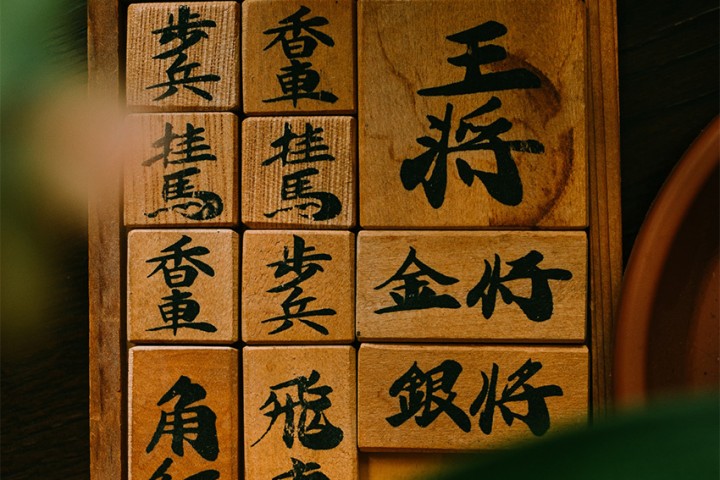 歩兵
香車
王将
桂馬
桂馬
香車
歩兵
金将
銀将
角
飛